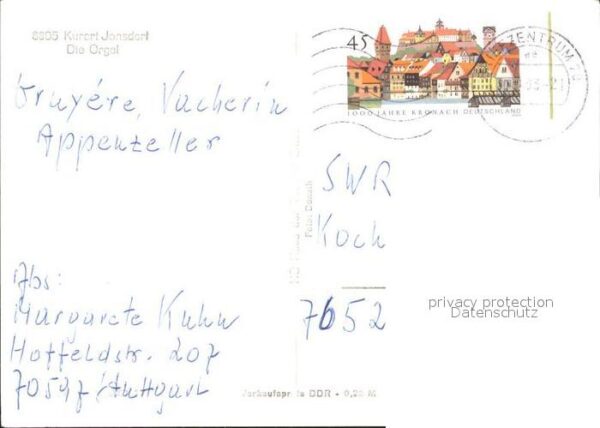 8805 Kurort Jonsdorf
Die Orgel
Gruyére, Vacherin
Appenzeller
Abs:
Margarete Kuhn
Hoffeldstr. 207
70597 Stuttgart
Foto: Donath
Verkaufspreis DDR • 0,20 M
45
1000 JAHRE KRONACH DEUTSCHLAND
ZENTRUM
SWR
Koch
7652
privacy protection
Datenschutz